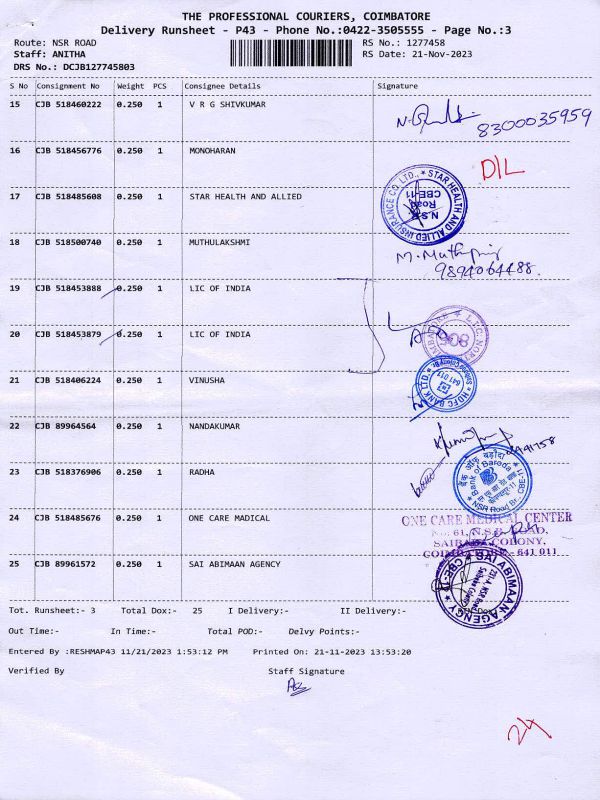 THE PROFESSIONAL COURIERS, COIMBATORE
Delivery Runsheet - P43 - Phone No.:0422-3505555 - Page No.:3
Route: NSR ROAD RS No.: 1277458
Staff: ANITHA RS Date: 21-Nov-2023
DRS No.: DCJB127745803
S No Consignment No Weight PCS Consignee Details Signature
15 CJB 518460222 0.250 1 V R G SHIVKUMAR
8300035959
16 CJB 518456776 0.250 1 MONOHARAN D/L
17 CJB 518485608 0.250 1 STAR HEALTH AND ALLIED
STAR HEALTH AND ALLIED INSURANCE CO. LTD., N.S.R. Road CBE-11
18 CJB 518500740 0.250 1 MUTHULAKSHMI
9894064488.
19 CJB 518453888 0.250 1 LIC OF INDIA
20 CJB 518453879 0.250 1 LIC OF INDIA
21 CJB 518406224 0.250 1 VINUSHA
HDFC BANK LTD. 641 011
22 CJB 89964564 0.250 1 NANDAKUMAR
23 CJB 518376906 0.250 1 RADHA
बैंक ऑफ़ बड़ौदा Bank of Baroda NSR Road Br., CBE-11
24 CJB 518485676 0.250 1 ONE CARE MADICAL
ONE CARE MEDICAL CENTER
No: 61, N.S.R. ROAD,
SAIBABA COLONY,
COIMBATORE - 641 011
25 CJB 89961572 0.250 1 SAI ABIMAAN AGENCY
SAI ABIMAAN AGENCY CBE-11
Tot. Runsheet:- 3 Total Dox:- 25 I Delivery:- II Delivery:-
Out Time:- In Time:- Total POD:- Delvy Points:-
Entered By :RESHMAP43 11/21/2023 1:53:12 PM Printed On: 21-11-2023 13:53:20
Verified By Staff Signature
24